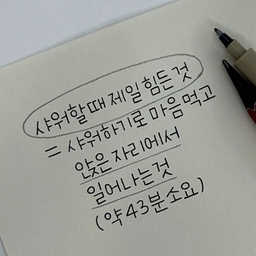 샤워할 때 제일 힘든 것
= 샤워하기로 마음먹고
앉은 자리에서
일어나는 것
(약 43분 소요)